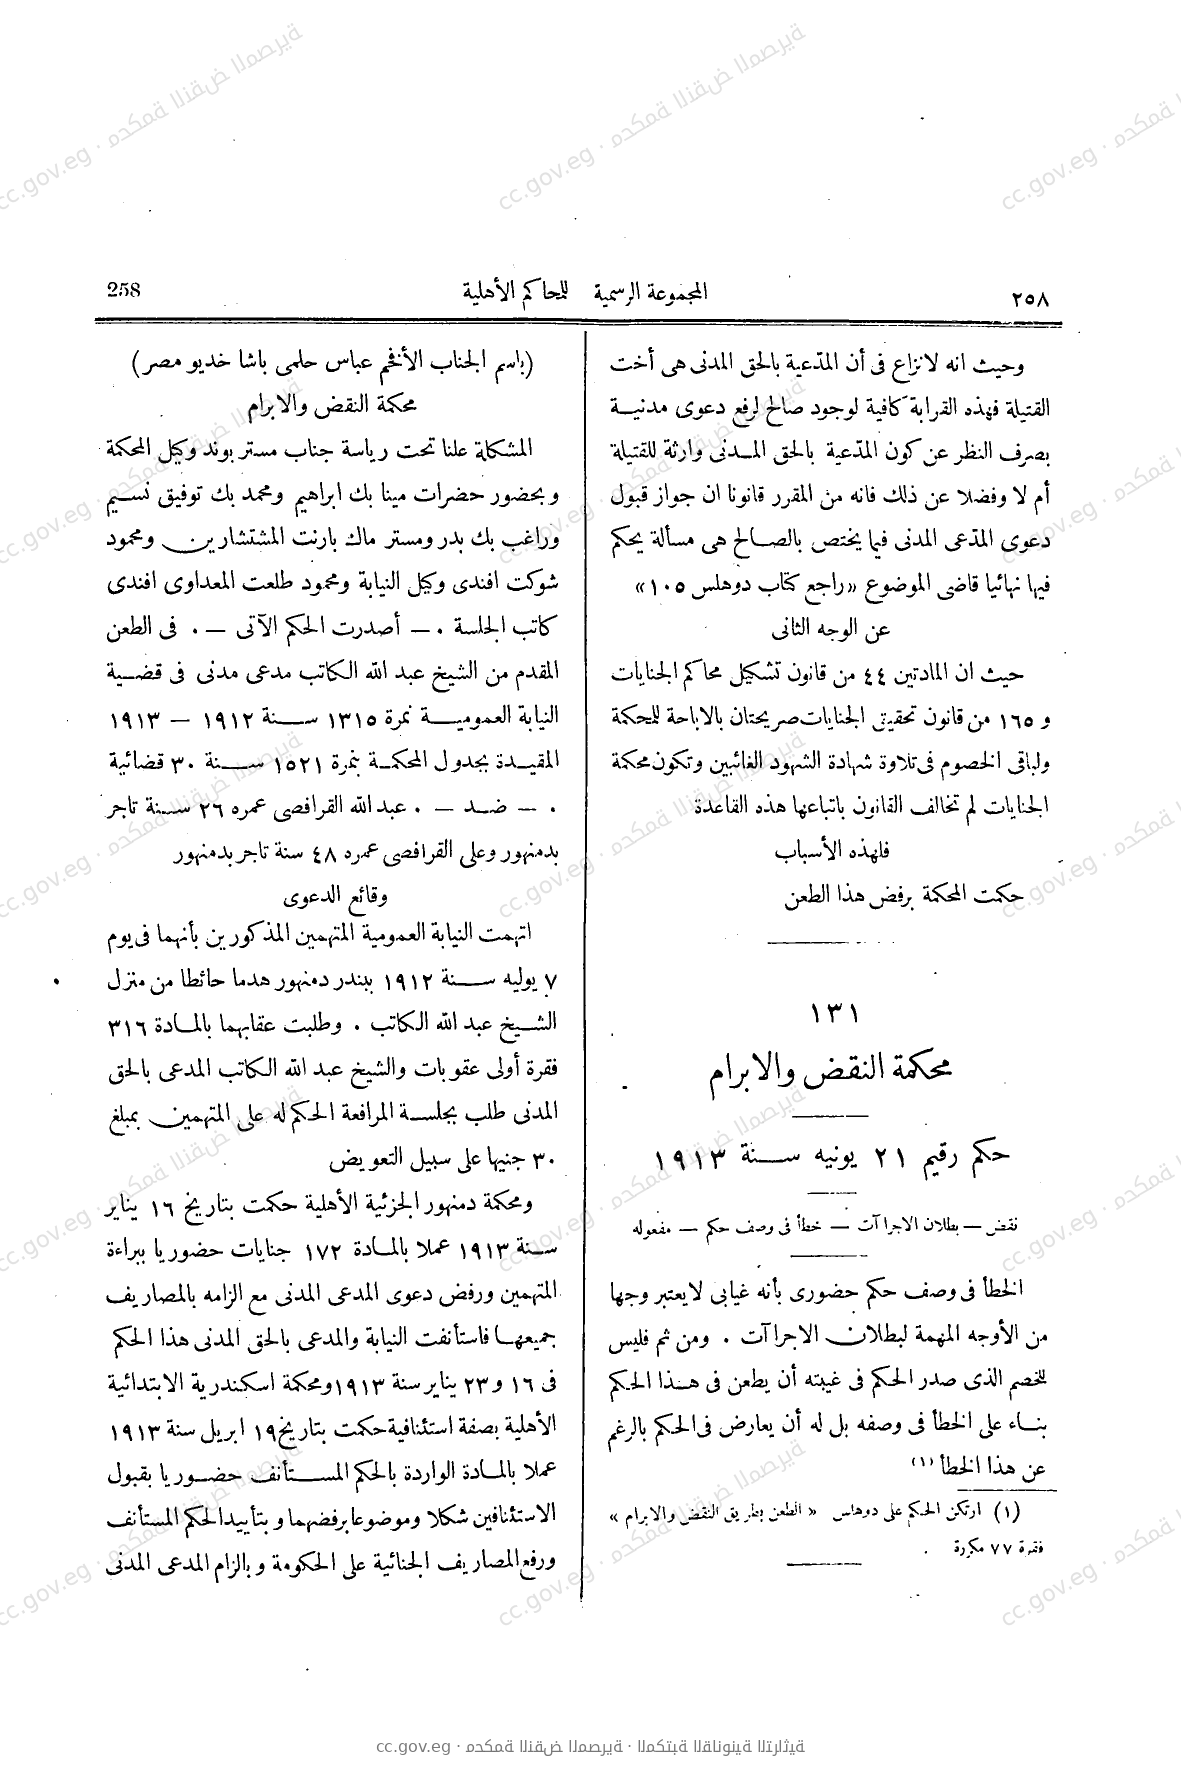 ٢٥٨ المجموعة الرسمية للمحاكم الأهلية 258
وحيث انه لانزاع فى أن المدّعية بالحق المدنى هى أخت
القتيلة فهذه القرابة كافية لوجود صالح لرفع دعوى مدنيــة
بصرف النظر عن كون المدّعية بالحق المــدنى وارثة للقتيلة
أم لا وفضلا عن ذلك فانه من المقرر قانونا ان جواز قبول
دعوى المدّعى المدنى فيما يختص بالصــالح هى مسألة يحكم
فيها نهائيا قاضى الموضوع «راجع كتاب دوهلس ١٠٥»
عن الوجه الثانى
حيث ان المادتين ٤٤ من قانون تشكيل محاكم الجنايات
و ١٦٥ من قانون تحقيق الجنايات صريحتان بالاباحة للمحكمة
ولباقى الخصوم فى تلاوة شهادة الشهود الغائبين وتكون محكمة
الجنايات لم تخالف القانون باتباعها هذه القاعدة
فلهذه الأسباب
حكمت المحكمة برفض هذا الطعن
١٣١
محكمة النقض والابرام
حكم رقيم ٢١ يونيه ســنة ١٩١٣
نقض — بطلان الاجراآت — خطأ فى وصف حكم — مفعوله
الخطأ فى وصف حكم حضورى بأنه غيابى لا يعتبر وجها
من الأوجه المهمة لبطلان الاجراآت . ومن ثم فليس
للخصم الذى صدر الحكم فى غيبته أن يطعن فى هــذا الحكم
بنــاء على الخطأ فى وصفه بل له أن يعارض فى الحكم بالرغم
عن هذا الخطأ (١)
(١) ارتكن الحكم على دوهلس « الطعن بطريق النقض والابرام »
فقرة ٧٧ مكررة
(باسم الجناب الأفخم عباس حلمى باشا خديو مصر)
محكمة النقض والابرام
المشكلة علنا تحت رياسة جناب مستر بوند وكيل المحكمة
وبحضور حضرات مينا بك ابراهيم ومحمد بك توفيق نسـيم
وراغب بك بدر ومستر ماك بارنت المشتشارين ومحمود
شوكت افندى وكيل النيابة ومحمود طلعت المعداوى افندى
كاتب الجلسة . — أصدرت الحكم الآتى — . فى الطعن
المقدم من الشيخ عبد الله الكاتب مدعى مدنى فى قضــية
النيابة العموميــة نمرة ١٣١٥ ســنة ١٩١٢ — ١٩١٣
المقيــدة بجدول المحكمــة بنمرة ١٥٢١ ســنة ٣٠ قضائية
. — ضــد — . عبد الله القرافصى عمره ٢٦ ســنة تاجر
بدمنهور وعلى القرافصى عمره ٤٨ سنة تاجر بدمنهور
وقائع الدعوى
اتهمت النيابة العمومية المتهمين المذكورين بأنهما فى يوم
٧ يوليه ســنة ١٩١٢ ببندر دمنهور هدما حائطا من منزل
الشــيخ عبد الله الكاتب . وطلبت عقابهما بالمــادة ٣١٦
فقرة أولى عقوبات والشيخ عبد الله الكاتب المدعى بالحق
المدنى طلب بجلســة المرافعة الحكم له على المتهمين بمبلغ
٣٠ جنيها على سبيل التعويض
ومحكمة دمنهور الجزئية الأهلية حكمت بتاريخ ١٦ يناير
ســنة ١٩١٣ عملا بالمــادة ١٧٢ جنايات حضوريا ببراءة
المتهمين ورفض دعوى المدعى المدنى مع الزامه بالمصاريف
جميعهــا فاستأنفت النيابة والمدعى بالحق المدنى هذا الحكم
فى ١٦ و ٢٣ يناير سنة ١٩١٣ ومحكمة اسكندرية الابتدائية
الأهلية بصفة استئنافية حكمت بتاريخ ١٩ ابريل سنة ١٩١٣
عملا بالمــادة الواردة بالحكم المســتأنف حضــوريا بقبول
الاستئنافين شكلا وموضوعا برفضهما وبتأييد الحكم المستأنف
ورفع المصاريف الجنائية على الحكومة وبالزام المدعى المدنى
cc.gov.eg · محكمة النقض المصرية · المكتبة القانونية التراثية